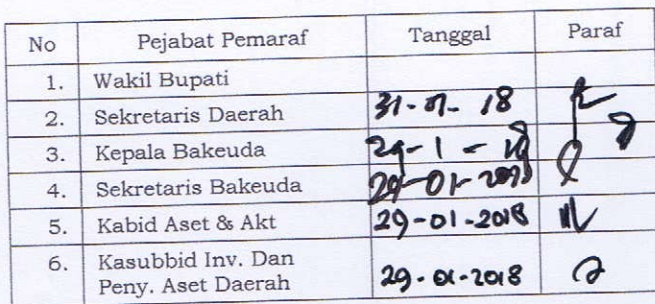 No Pejabat Pemaraf Tanggal Paraf
1. Wakil Bupati
2. Sekretaris Daerah 31-01-18
3. Kepala Bakeuda 29-1-18
4. Sekretaris Bakeuda 29-01-2018
5. Kabid Aset & Akt 29-01-2018
6. Kasubbid Inv. Dan
Peny. Aset Daerah 29-01-2018